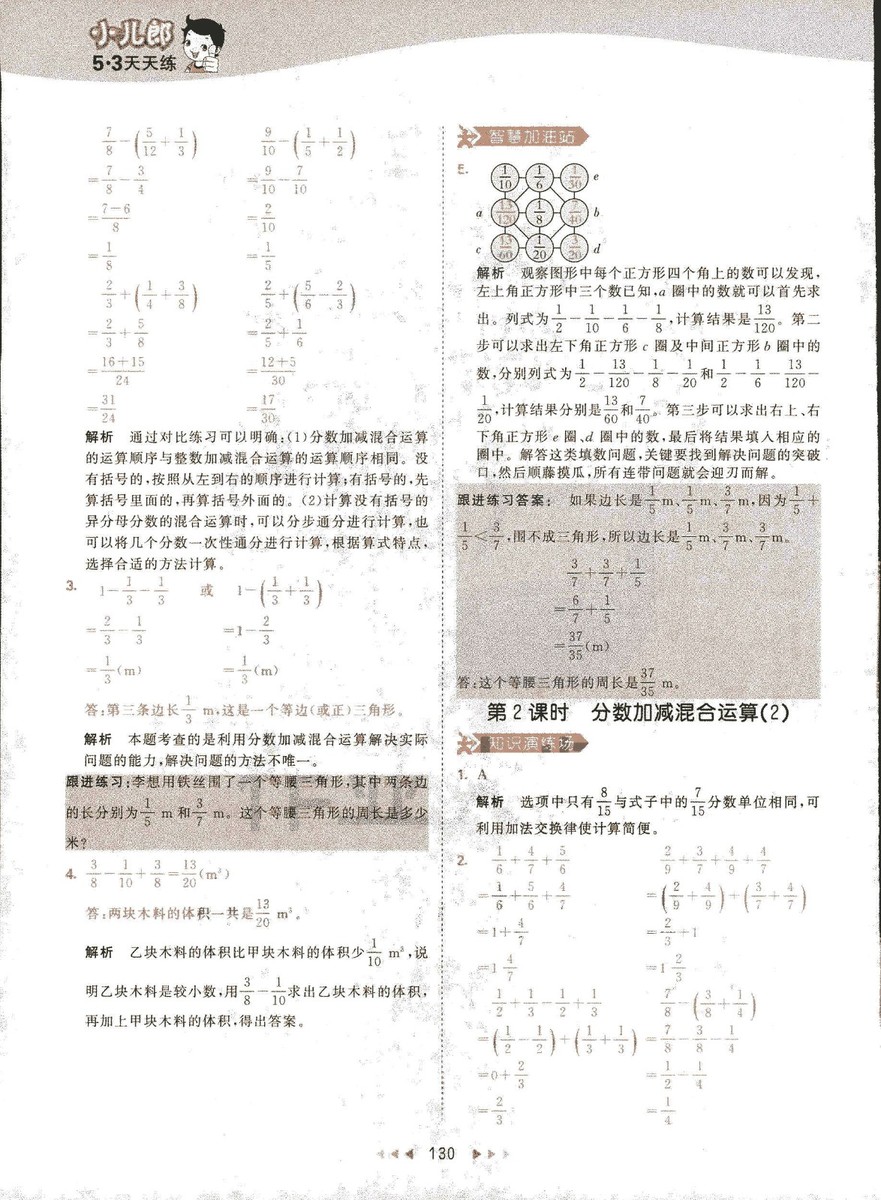 小儿郎
5·3天天练
7/8-(5/12+1/3)
=7/8-3/4
=(7-6)/8
=1/8
9/10-(1/5+1/2)
=9/10-7/10
=2/10
=1/5
2/3+(1/4+3/8)
=2/3+5/8
=(16+15)/24
=31/24
2/5+(5/6-2/3)
=2/5+1/6
=(12+5)/30
=17/30
解析 通过对比练习可以明确:(1)分数加减混合运算
的运算顺序与整数加减混合运算的运算顺序相同。没
有括号的,按照从左到右的顺序进行计算;有括号的,先
算括号里面的,再算括号外面的。(2)计算没有括号的
异分母分数的混合运算时,可以分步通分进行计算,也
可以将几个分数一次性通分进行计算,根据算式特点,
选择合适的方法计算。
3. 1-1/3-1/3 或 1-(1/3+1/3)
=2/3-1/3 =1-2/3
=1/3(m) =1/3(m)
答:第三条边长1/3 m,这是一个等边(或正)三角形。
解析 本题考查的是利用分数加减混合运算解决实际
问题的能力,解决问题的方法不唯一。
跟进练习:李想用铁丝围了一个等腰三角形,其中两条边
的长分别为1/5 m和3/7 m。这个等腰三角形的周长是多少
米?
4. 3/8-1/10+3/8=13/20(m³)
答:两块木料的体积一共是13/20 m³。
解析 乙块木料的体积比甲块木料的体积少1/10 m³,说
明乙块木料是较小数,用3/8-1/10求出乙块木料的体积,
再加上甲块木料的体积,得出答案。
智慧加油站
5.
1/10 1/6 1/30 e
a 13/120 1/8 7/40 b
c 13/60 1/20 3/20 d
解析 观察图形中每个正方形四个角上的数可以发现,
左上角正方形中三个数已知,a圈中的数就可以首先求
出。列式为1/2-1/10-1/6-1/8,计算结果是13/120。第二
步可以求出左下角正方形c圈及中间正方形b圈中的
数,分别列式为1/2-13/120-1/8-1/20和1/2-1/6-13/120-
1/20,计算结果分别是13/60和7/40。第三步可以求出右上、右
下角正方形e圈、d圈中的数,最后将结果填入相应的
圈中。解答这类填数问题,关键要找到解决问题的突破
口,然后顺藤摸瓜,所有连带问题就会迎刃而解。
跟进练习答案: 如果边长是1/5 m、1/5 m、3/7 m,因为1/5+
1/5<3/7,围不成三角形,所以边长是1/5 m、3/7 m、3/7 m。
3/7+3/7+1/5
=6/7+1/5
=37/35(m)
答:这个等腰三角形的周长是37/35 m。
第2课时 分数加减混合运算(2)
知识演练场
1. A
解析 选项中只有8/15与式子中的7/15分数单位相同,可
利用加法交换律使计算简便。
2. 1/6+4/7+5/6
=1/6+5/6+4/7
=1+4/7
=1 4/7
2/9+3/7+4/9+4/7
=(2/9+4/9)+(3/7+4/7)
=2/3+1
=1 2/3
1/2+1/3-1/2+1/3
=(1/2-1/2)+(1/3+1/3)
=0+2/3
=2/3
7/8-(3/8+1/4)
=7/8-3/8-1/4
=1/2-1/4
=1/4
130